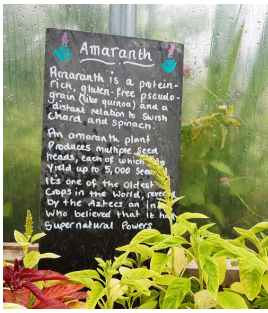 Amaranth
Amaranth is a protein-
rich, gluten-free pseudo-
grain (like quinoa) and a
distant relation to Swish
Chard and spinach.
An amaranth plant
Produces multiple seed
heads, each of which
Yield up to 5,000 See
It's one of the oldest
Crops in the World, reve
by the Aztecs an
Who believed that it ha
Supernatural Powers